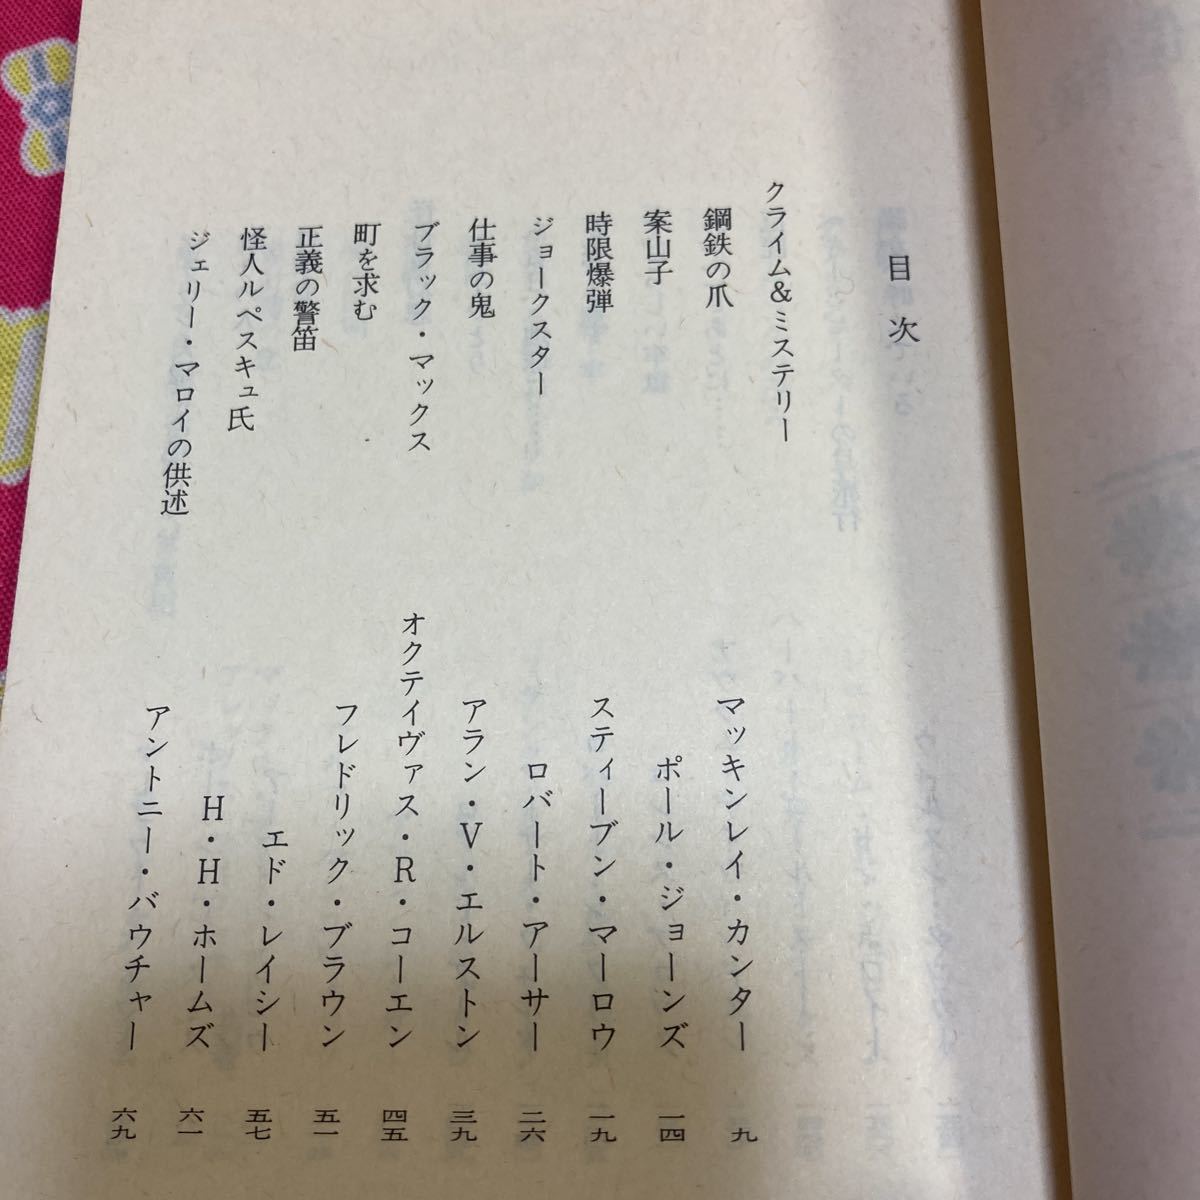 目次
クライム&ミステリー
鋼鉄の爪　マッキンレイ・カンター　九
案山子　ポール・ジョーンズ　一四
時限爆弾　スティーブン・マーロウ　一九
ジョークスター　ロバート・アーサー　二六
仕事の鬼　アラン・V・エルストン　三九
ブラック・マックス　オクテイヴァス・R・コーエン　四五
町を求む　フレドリック・ブラウン　五一
正義の警笛　エド・レイシー　五七
怪人ルペスキュ氏　H・H・ホームズ　六一
ジェリー・マロイの供述　アントニー・バウチャー　六九